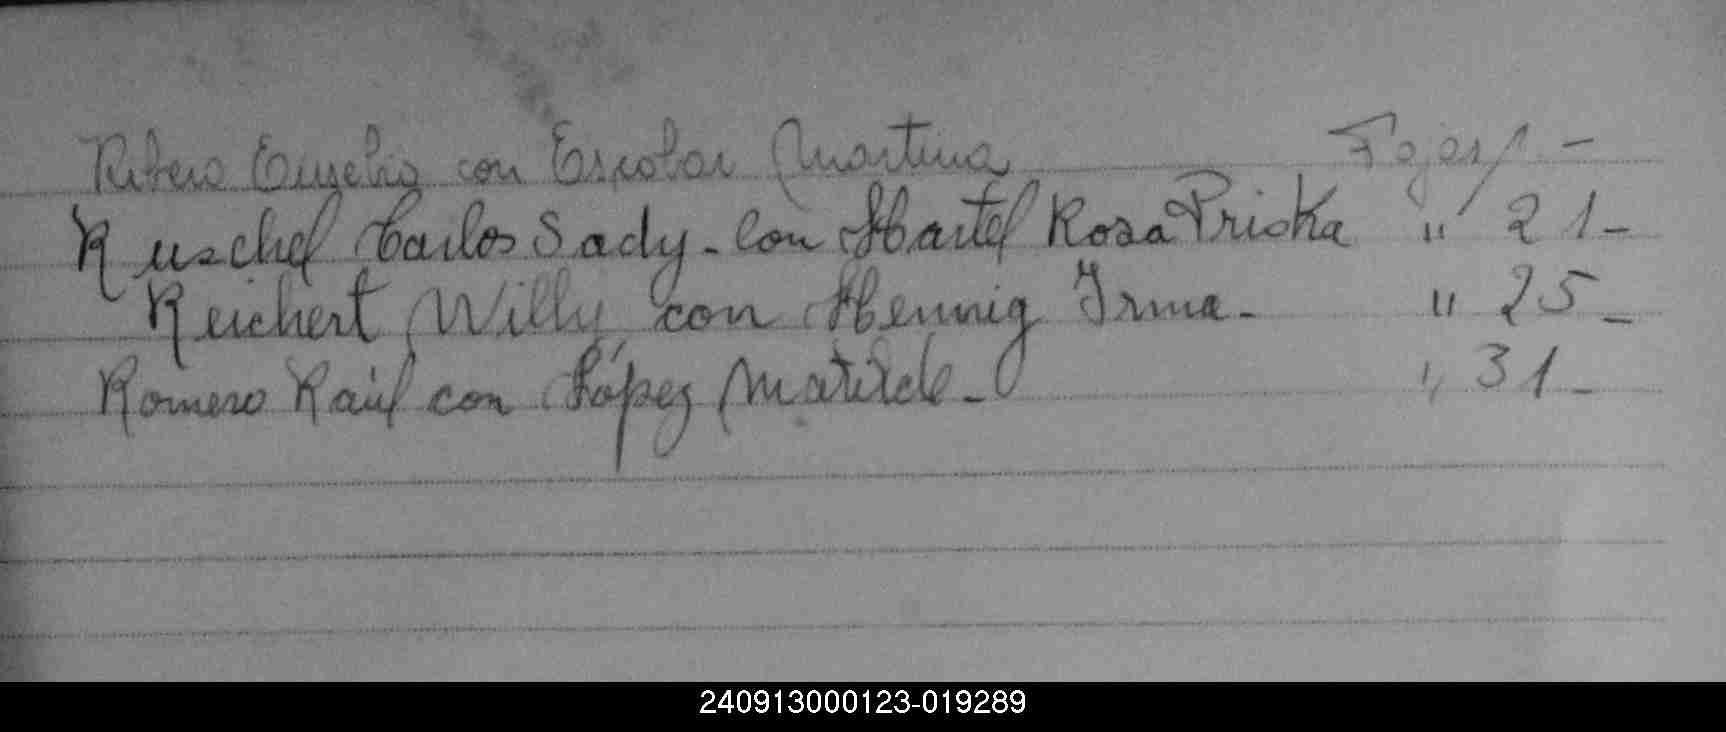 Ribero Eusebio con Escobar Martina Fojas 1. -
Ruschel Carlos Sady - Con Hartel Rosa Priska " 21 -
Reichert Willy con Hennig Irma - " 25 -
Romero Raúl con López Matilde - " 31 -
240913000123-019289